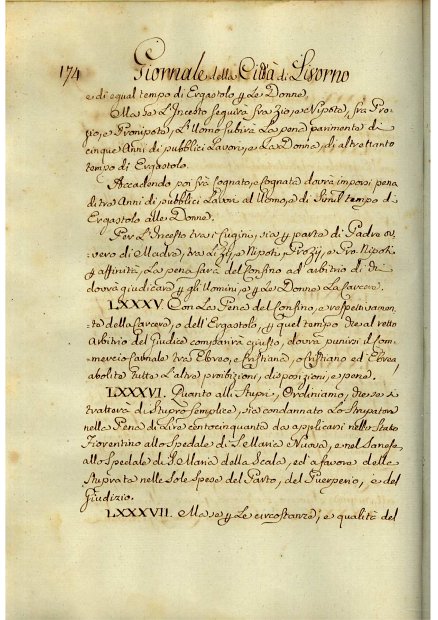 174 Giornale della Città di Livorno
e di equal tempo di Ergastolo p Le Donne.
Ma se L'Incesto seguirà fra Zio, e Nipote, fra Pro=
zio, e Pronipote, L'Uomo subirà La pena parimente di
cinque Anni di pubblici Lavori, e La Donna, di altrettanto
tempo di Ergastolo.
Accadendo poi frà Cognato, e Cognata dovrà imporsi pena
di tre Anni di pubblici Lavori al Uomo, e di Simil tempo di
Ergastolo alle Donne.
Per L'Incesto tra i Cugini, sia p parte di Padre ov=
vero di Madre, tra Zij, e Nipoti, Prozij, e Pro=Nipoti
p affinità, La pena sarà del Confino ad arbitrio di chi
dovrà giudicare p gli Uomini, e p Le Donne La Carcere.
LXXXV. Con La Pena del Confino, e respettivamen=
te della Carcere, o dell'Ergastolo, p quel tempo che al retto
Arbitrio del Giudice comparirà giusto, dovrà punirsi il Com=
mercio Carnale tra Ebreo, e Cristiana, o Cristiano ed Ebrea,
abolite tutte L'altre proibizioni, disposizioni, e pene.
LXXXVI. Quanto alli Stupri, Ordiniamo, che se si
tratterà di Stupro Semplice, sia condannato Lo Stupratore
nella Pena di Lire centocinquanta da applicarsi nello Stato
Fiorentino allo Spedale di S. Maria Nuova, e nel Sanese
allo Spedale di S. Maria della Scala, ed a favore della
Stuprata nelle Sole Spese del Parto, del Puerperio, e del
Giudizio.
LXXXVII. Ma se p Le circostanze, e qualità del